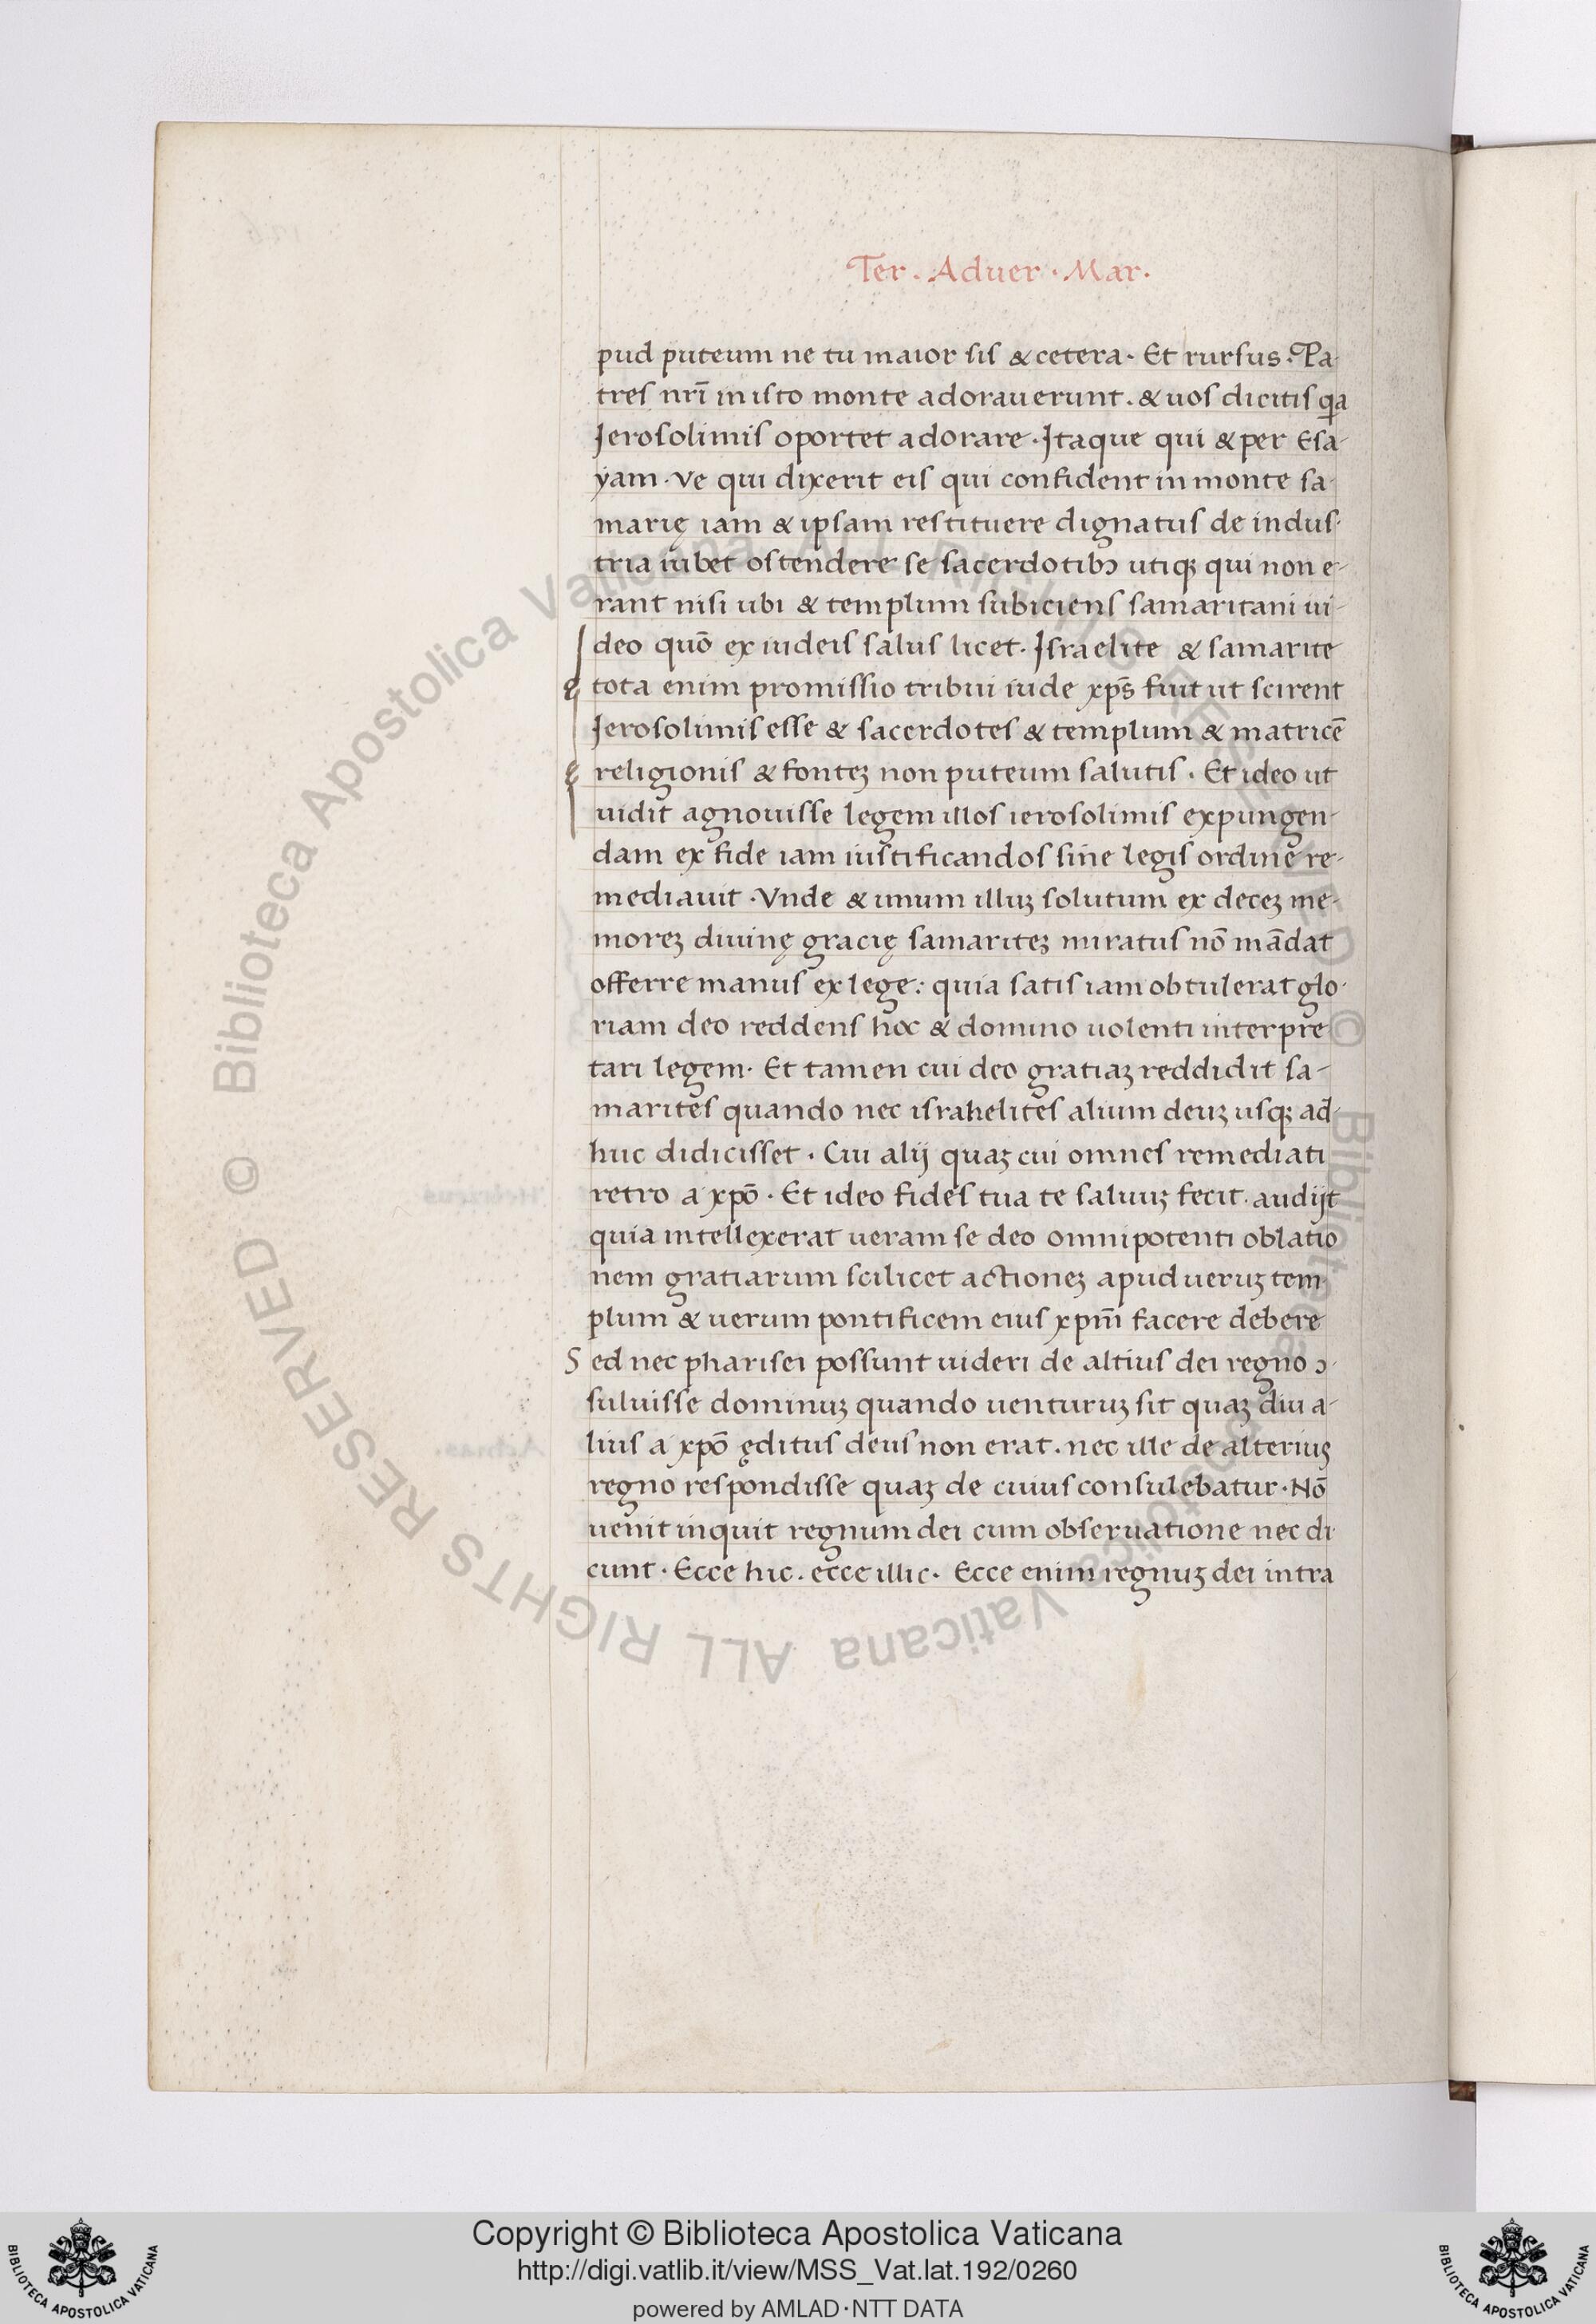 Ter. Aduer. Mar.
pud puteum ne tu maior sis & cetera. Et rursus. Pa-
tres nrī in isto monte adorauerunt. & uos dicitis qa
Ierosolimis oportet adorare. Itaque qui & per Esa-
yam. ve qui dixerit eis qui confident in monte sa-
marię iam & ipsam restituere dignatus de indus-
tria iubet ostendere se sacerdotibꝫ utiqꝫ qui non e-
rant nisi ubi & templum subiciens samaritani ui-
deo quō ex iudeis salus licet. Israelite & samarite
tota enim promissio tribui iude xp̄s fuit ut scirent
Ierosolimis esse & sacerdotes & templum & matricē
religionis & fonteꝫ non puteum salutis. Et ideo ut
uidit agnouisse legem illos ierosolimis expungen-
dam ex fide iam iustificandos sine legis ordine re-
mediauit. Vnde & unum illuꝫ solutum ex deceꝫ me-
moreꝫ diuinę gracię samariteꝫ miratus nō mādat
offerre manus ex lege: quia satis iam obtulerat glo-
riam deo reddens hoc & domino uolenti interpre
tari legem. Et tamen cui deo gratiaꝫ reddidit sa-
marites quando nec israhelites alium deuꝫ usqꝫ ad-
huc didicisset. Cui alij quaꝫ cui omnes remediati
retro a xpō. Et ideo fides tua te saluuꝫ fecit. audijt
quia intellexerat ueram se deo omnipotenti oblatio
nem gratiarum scilicet actioneꝫ apud ueruꝫ tem-
plum & uerum pontificem eius xpm̄ facere debere
Sed nec pharisei possunt uideri de altius dei regno ɔ-
suluisse dominuꝫ quando uenturuꝫ sit quaꝫ diu a-
lius a xpō ęditus deus non erat. nec ille de alteriuꝫ
regno respondisse quaꝫ de cuius consulebatur. Nō
uenit inquit regnum dei cum obseruatione nec di
cunt. Ecce hic. ecce illic. Ecce enim regnuꝫ dei intra
© Biblioteca Apostolica Vaticana ALL RIGHTS RESERVED © Biblioteca Apostolica Vaticana ALL RIGHTS RESERVED
Copyright © Biblioteca Apostolica Vaticana
http://digi.vatlib.it/view/MSS_Vat.lat.192/0260
powered by AMLAD·NTT DATA
BIBLIOTECA APOSTOLICA VATICANA
BIBLIOTECA APOSTOLICA VATICANA